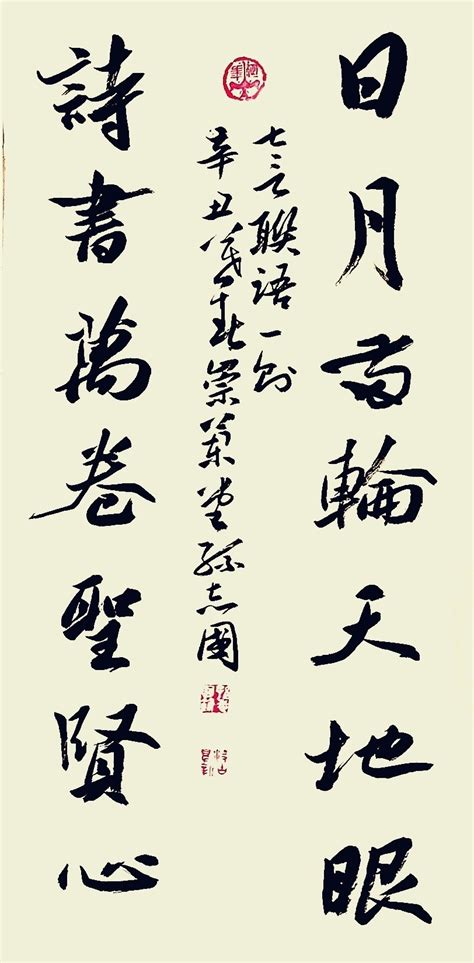 日月兩輪天地眼
七言聯語一則
辛丑暮春崇蘭堂孫志國
詩書萬卷聖賢心